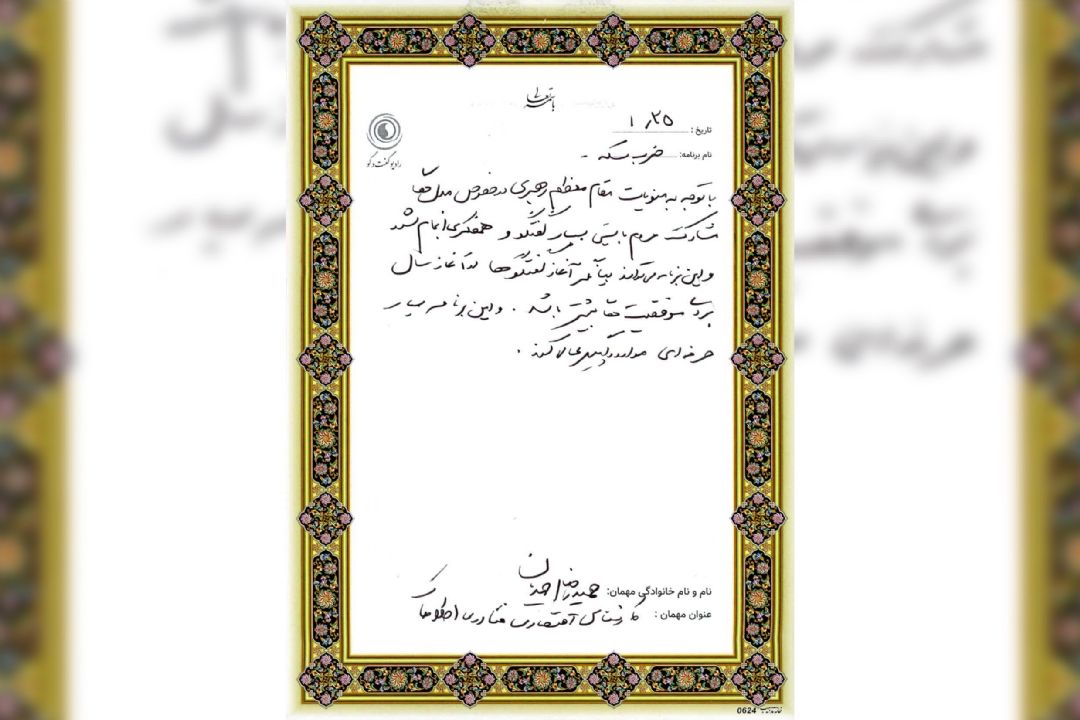 باسمه تعالی
رادیو گفت و گو
تاریخ : ۱٫۲۵
نام برنامه: ضرب سکه -
با توجه به منویات مقام معظم رهبری در خصوص مدل های
مشارکت مردم بایستی بسیار گفتگو و همفکری انجام شود
و این برنامه می‌تواند بیانگر آغاز گفتگوها در آغاز سال
برای موفقیت های بیشتر باشد . و این برنامه بسیار
حرفه ای موارد را پیگیری می کند .
نام و نام خانوادگی مهمان: حمیدرضا احمدیان
عنوان مهمان : کارشناس اقتصادی فناوری اطلاعات
0624